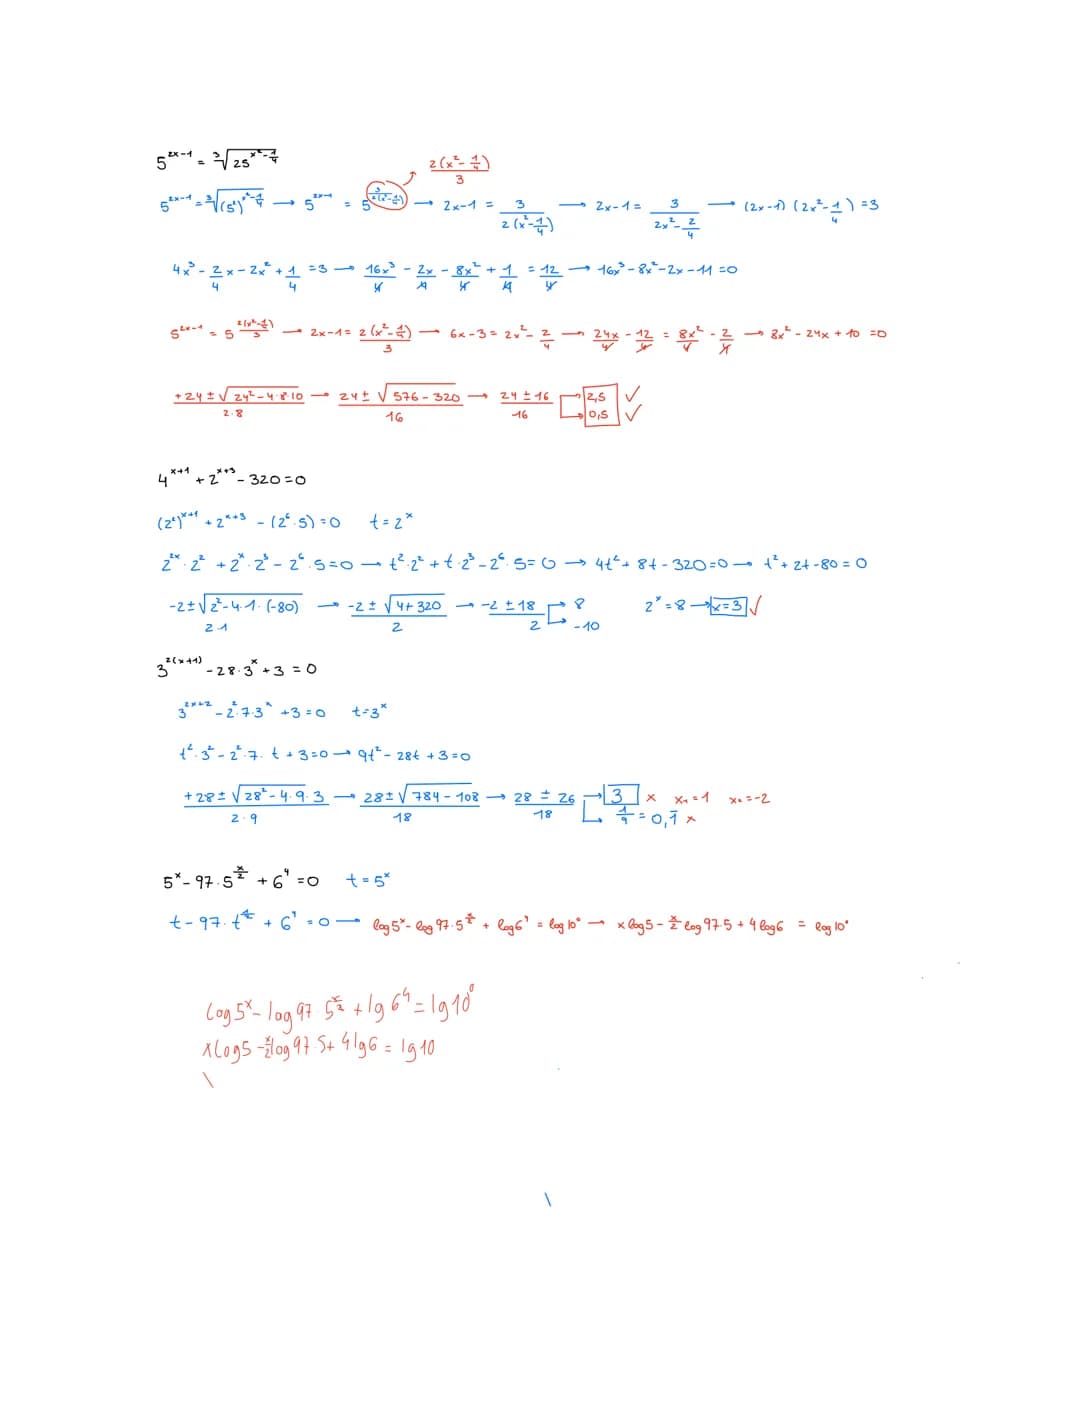 5^{2x-1} = ∛(25^{x²-1/4})
2(x²-1/4)/3
5^{2x-1} = ∛((5²)^{x²-1/4}) → 5^{2x-1} = 5^{3/(2(x²-1/4))} → 2x-1 = 3/(2(x²-1/4)) → 2x-1 = 3/(2x²-2/4) → (2x-1)(2x²-1/4) = 3
4x³ - 2/4 x - 2x² + 1/4 = 3 → 16x³/4 - 2x/4 - 8x²/4 + 1/4 = 12/4 → 16x³-8x²-2x-11=0
5^{2x-1} = 5^{2(x²-1/4)/3} → 2x-1 = 2(x²-1/4)/3 → 6x-3 = 2x²-2/4 → 24x/4 - 12/4 = 8x²/4 - 2/4 → 8x²-24x+10=0
(+24±√(24²-4·8·10))/(2·8) → (24±√(576-320))/16 → (24±16)/16 → 2,5 ✓
→ 0,5 ✓
4^{x+1} + 2^{x+3} - 320 = 0
(2²)^{x+1} + 2^{x+3} - (2⁶·5) = 0 t = 2^x
2^{2x}·2² + 2^x·2³ - 2⁶·5 = 0 → t²·2² + t·2³ - 2⁶·5 = 0 → 4t² + 8t - 320 = 0 → t² + 2t - 80 = 0
(-2±√(2²-4·1·(-80)))/(2·1) → (-2±√(4+320))/2 → (-2±18)/2 → 8 2^x = 8 → x=3 ✓
→ -10
3^{2(x+1)} - 28·3^x + 3 = 0
3^{2x+2} - 2²·7·3^x + 3 = 0 t = 3^x
t²·3² - 2²·7·t + 3 = 0 → 9t² - 28t + 3 = 0
(+28±√(28²-4·9·3))/(2·9) → (28±√(784-108))/18 → (28±26)/18 → 3 × x₁=1 x₂=-2
→ 1/9 = 0,1̄ ×
5^x - 97·5^{x/2} + 6⁴ = 0 t = 5^x
log5^x - log97·5^{x/2} + log6⁴ = log10⁰ → xlog5 - x/2 log97·5 + 4log6 = log10⁰
log5^x - log97·5^{x/2} + lg6⁴ = lg10⁰
xlog5 - x/2 log97·5 + 4lg6 = lg10
\
\